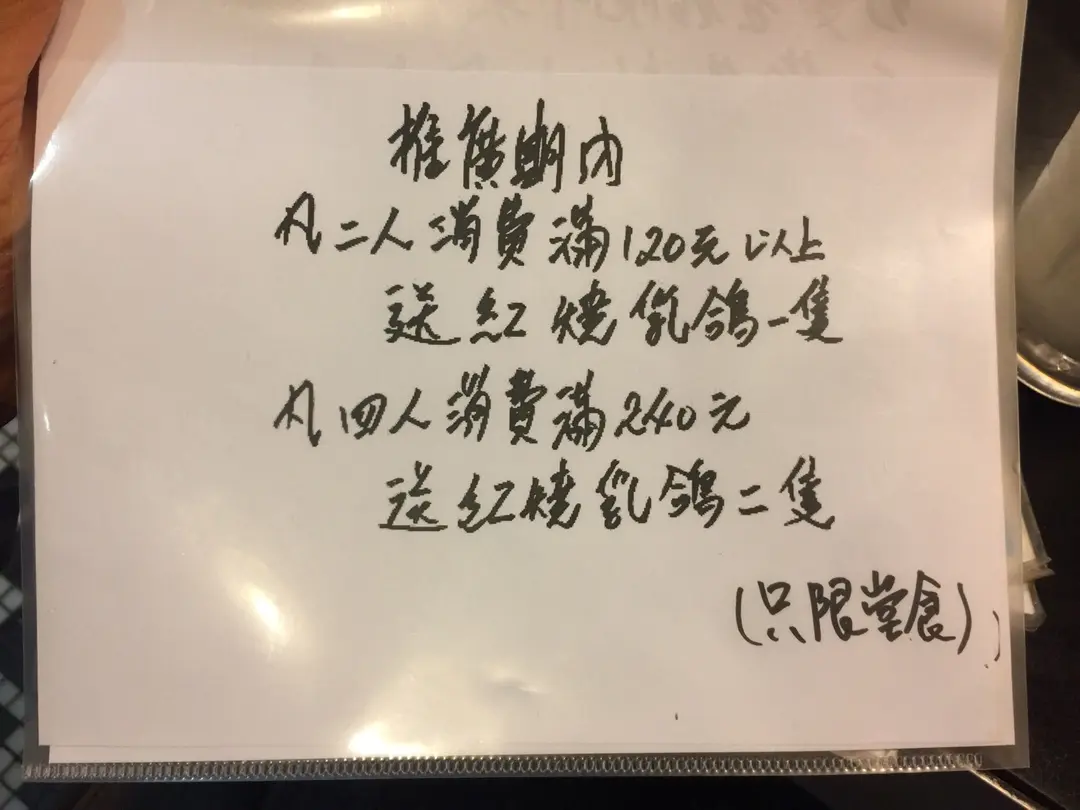 推廣期內
凡二人消費滿120元以上
送紅燒乳鴿一隻
凡四人消費滿240元
送紅燒乳鴿二隻
(只限堂食)